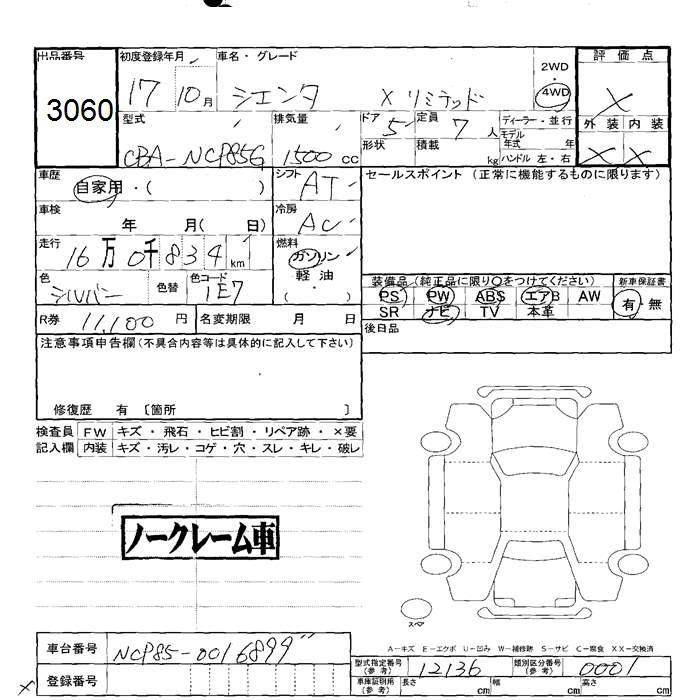 出品番号 初度登録年月 車名・グレード 評価点
3060 17 10月 シエンタ X リミテッド 2WD・4WD X
型式 排気量 ドア 5 定員 7人 ディーラー・並行 外装 内装
CBA-NCP85G 1500cc 形状 積載 kg モデル年式 年 X X
ハンドル 左・右
車歴 シフト セールスポイント (正常に機能するものに限ります)
自家用・( ) AT
車検 冷房
年 月( 日) AC
走行 燃料
16万0千834km ガソリン
軽油
( ・ )
色 色替 色コード 装備品 (純正品に限り〇をつけてください) 新車保証書
シルバー 1E7 PS PW ABS エアB AW 有・無
SR ナビ TV 本革
R券 11,100円 名変期限 月 日 後日品
注意事項申告欄(不具合内容等は具体的に記入して下さい)
修復歴 有 〔箇所 〕
検査員 FW キズ・飛石・ヒビ割・リペア跡・×要
記入欄 内装 キズ・汚レ・コゲ・穴・スレ・キレ・破レ
ノークレーム車
スペア
A-キズ E-エクボ U-凹み W-補修跡 S-サビ C-腐食 XX-交換済
車台番号 NCP85-0016899 型式指定番号(参考) 12136 類別区分番号(参考) 0001
登録番号 車庫証明用(参考) 長さ cm 幅 cm 高さ cm